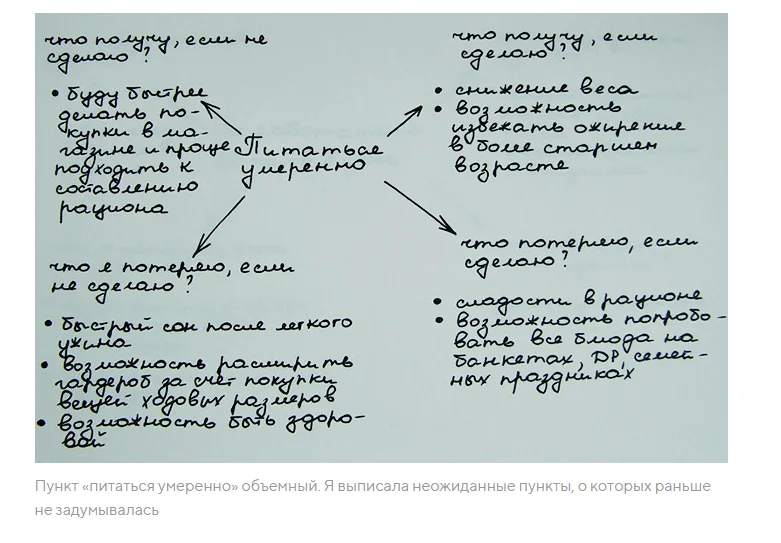 что получу, если не
сделаю?
• буду быстрее
делать по-
купки в ма-
газине и проще
подходить к
составлению
рациона
что получу, если
сделаю?
• снижение веса
• возможность
избежать ожирение
в более старшем
возрасте
Питаться
умеренно
что я потеряю, если
не сделаю?
• быстрый сон после легкого
ужина
• возможность расширить
гардероб за счет покупки
вещей ходовых размеров
• возможность быть здоро-
вой
что потеряю, если
сделаю?
• сладости в рационе
• возможность попробо-
вать все блюда на
банкетах, ДР, семей-
ных праздниках
Пункт «питаться умеренно» объемный. Я выписала неожиданные пункты, о которых раньше
не задумывалась